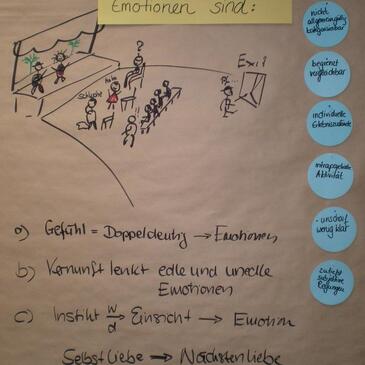 Emotionen sind:
nicht
allgemeingültig
kategorisierbar
begrenzt
vergleichbar
individuelle
Erlebniszustände
Aktivität
- unscharf
wenig klar
zutiefst
subjektive
Regungen
Exit
?
a) Gefühl = Doppeldeutig → Emotionen
b) Vernunft lenkt edle und unedle
Emotionen
c) Instinkt → Einsicht → Emotion
Selbstliebe → Nächstenliebe